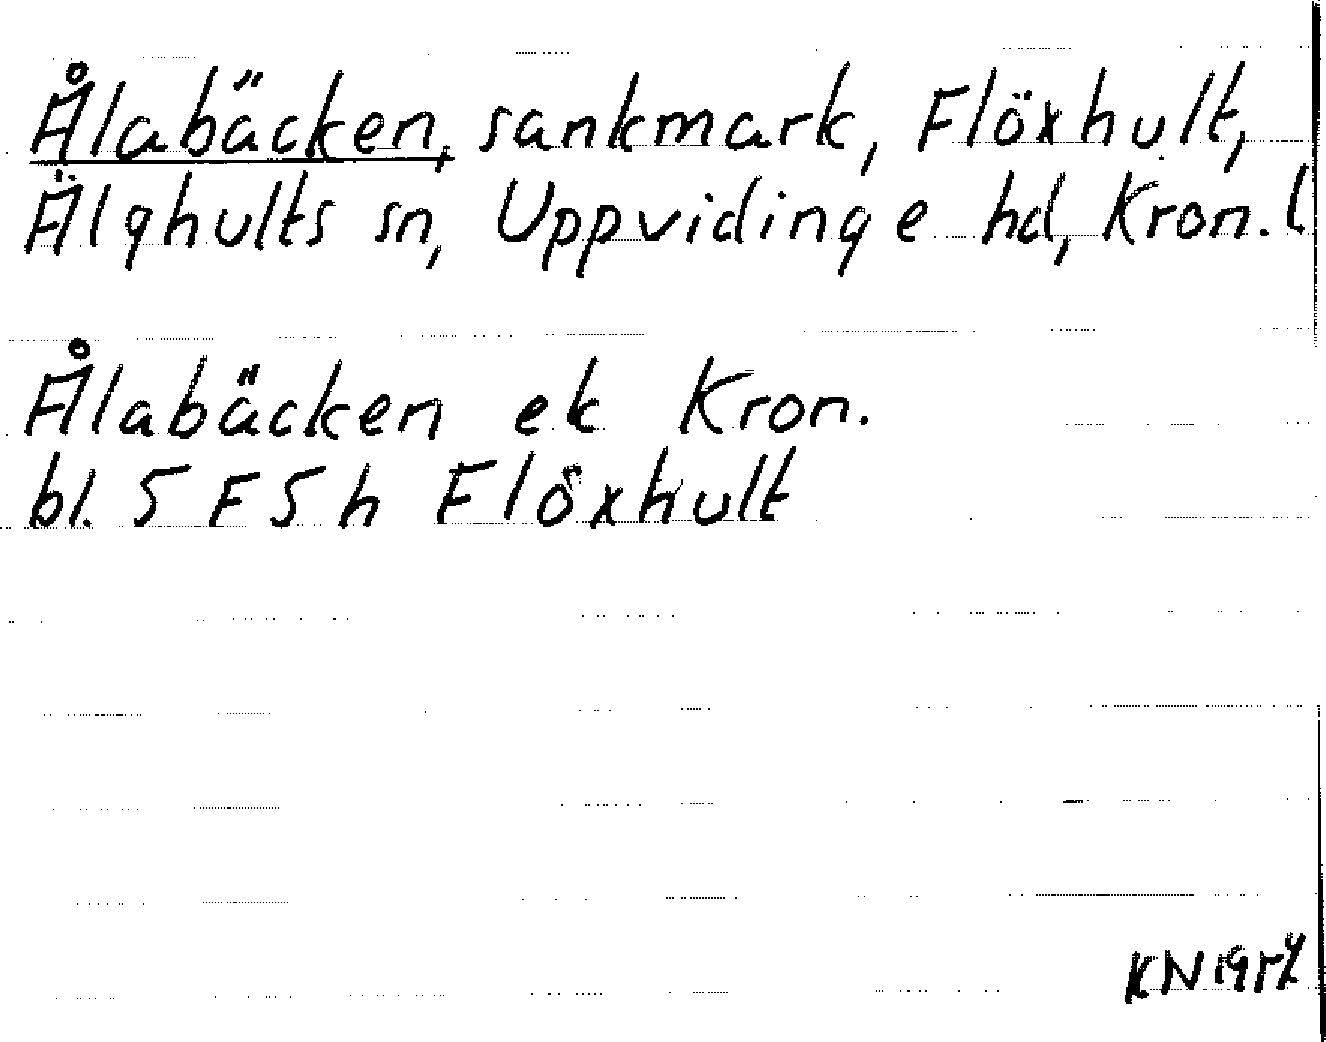 Ålabäcken, sankmark, Flöxhult,
Älghults sn, Uppvidinge hd, Kron. l
Ålabäcken ek Kron.
bl. 5 F 5 h Flöxhult
KN